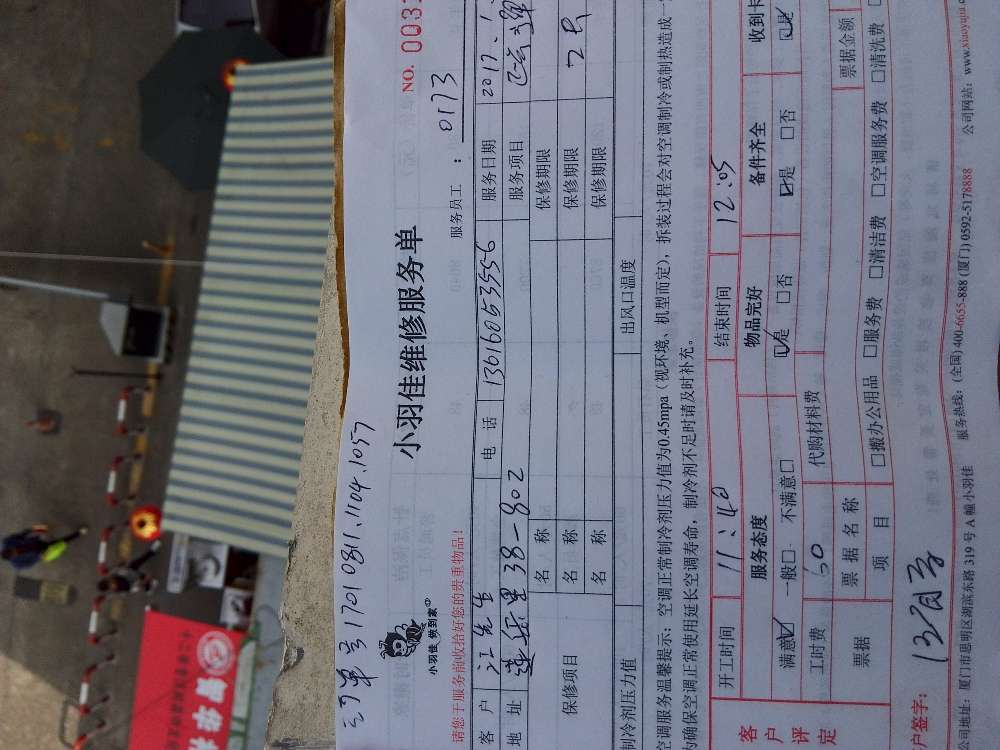 170811.1104.1057
小羽佳维修服务单
NO. 0033
小羽佳 做到家
服务员工： 0173
请您于服务前收拾好您的贵重物品！
客 户 江先生 电 话 13616053556 服务日期 2017.
地 址 莲岳里38-802 服务项目
保修项目 名 称 保修期限
名 称 保修期限
名 称 保修期限
制冷剂压力值 出风口温度
空调服务温馨提示：空调正常制冷剂压力值为0.45mpa（视环境、机型而定），拆装过程会对空调制冷或制热造成一
为确保空调正常使用延长空调寿命，制冷剂不足时请及时补充。
开工时间 11:40 结束时间 12:05
客户评定
服务态度 物品完好 备件齐全 收到卡
满意☑ 一般□ 不满意□ ☑是 □否 ☑是 □否 ☑是
工时费 60 代购材料费
票据 票据名称 票据金额
项 目 □搬办公用品 □服务费 □清洁费 □空调服务费 □清洗费
户签字：
公司地址：厦门市思明区湖滨东路 319 号 A 幢小羽佳 服务热线：(全国) 400-6655-888 (厦门) 0592-5178888 公司网站：www.xiaoyujia.c